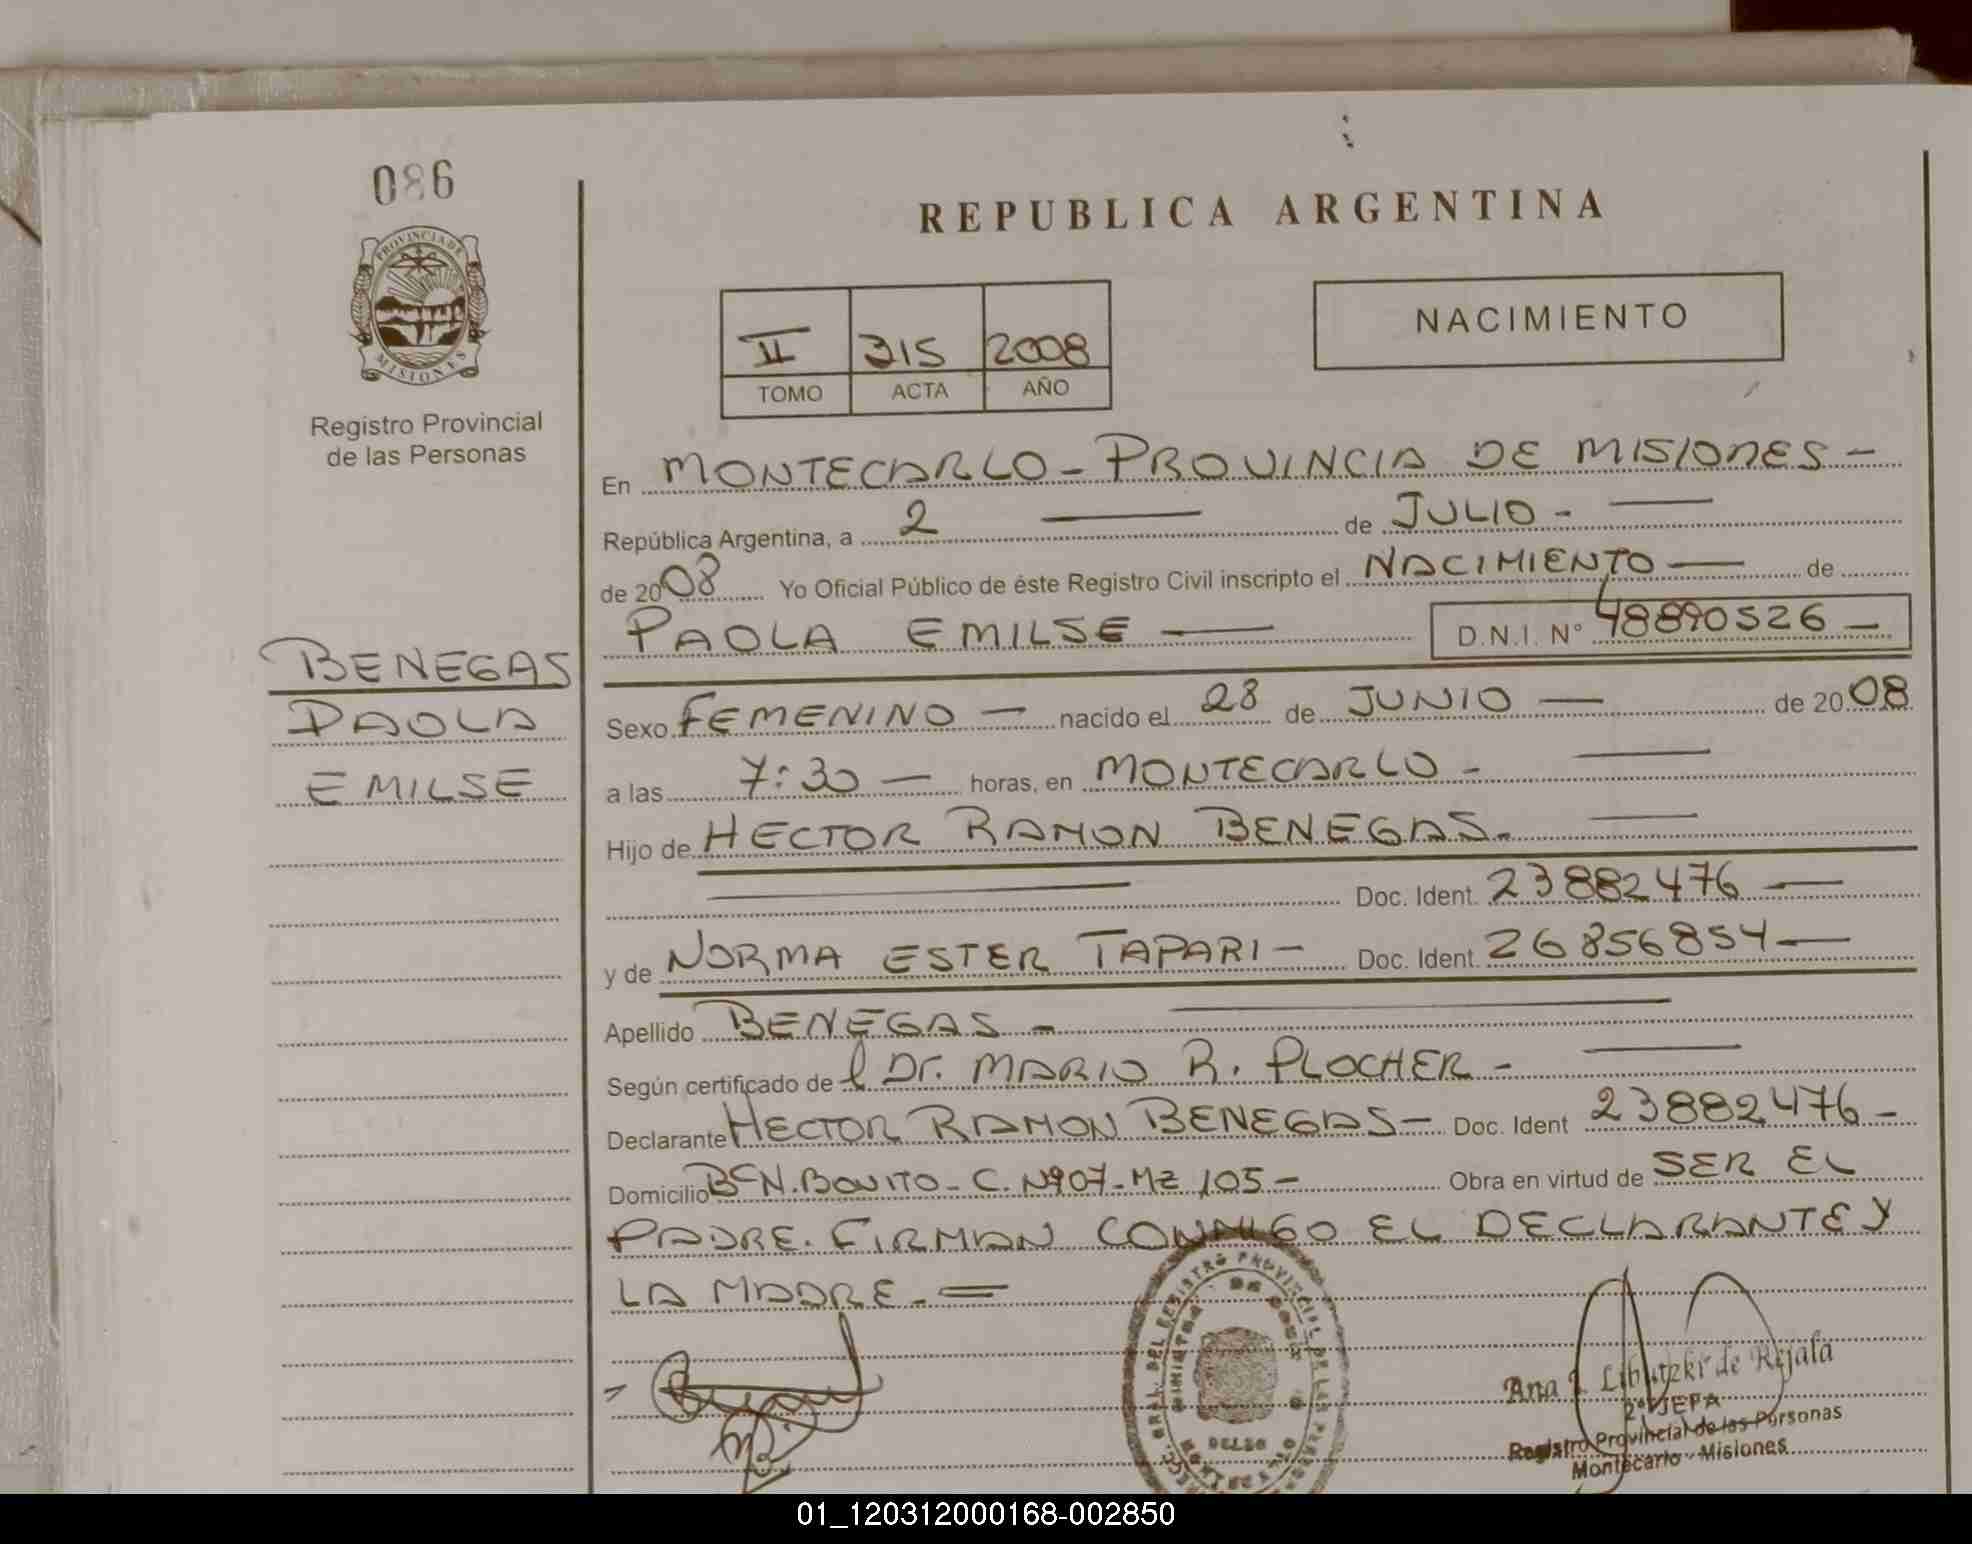 086
PROVINCIA DE
MISIONES
Registro Provincial
de las Personas
BENEGAS
PAOLA
EMILSE
REPUBLICA ARGENTINA
NACIMIENTO
II 315 2008
TOMO ACTA AÑO
En MONTECARLO - PROVINCIA DE MISIONES -
República Argentina, a 2 — de JULIO - —
de 2008 Yo Oficial Público de éste Registro Civil inscripto el NACIMIENTO — de
PAOLA EMILSE — D.N.I. N° 48890526 —
Sexo FEMENINO — nacido el 28 de JUNIO — de 2008
a las 7:30 — horas, en MONTECARLO - —
Hijo de HECTOR RAMON BENEGAS - —
— Doc. Ident. 23882476 —
y de NORMA ESTER TAPARI - Doc. Ident. 26856854 —
Apellido BENEGAS - —
Según certificado de l Dr. MARIO R. PLOCHER - —
Declarante HECTOR RAMON BENEGAS — Doc. Ident 23882476 -
Domicilio B° N. BONITO - C. N° 07 - MZ 105 - Obra en virtud de SER EL
PADRE. FIRMAN CONMIGO EL DECLARANTE Y
LA MADRE. =
Ana Libutzki de Rejala
2° JEPA
Registro Provincial de las Personas
Montecarlo - Misiones
01_120312000168-002850